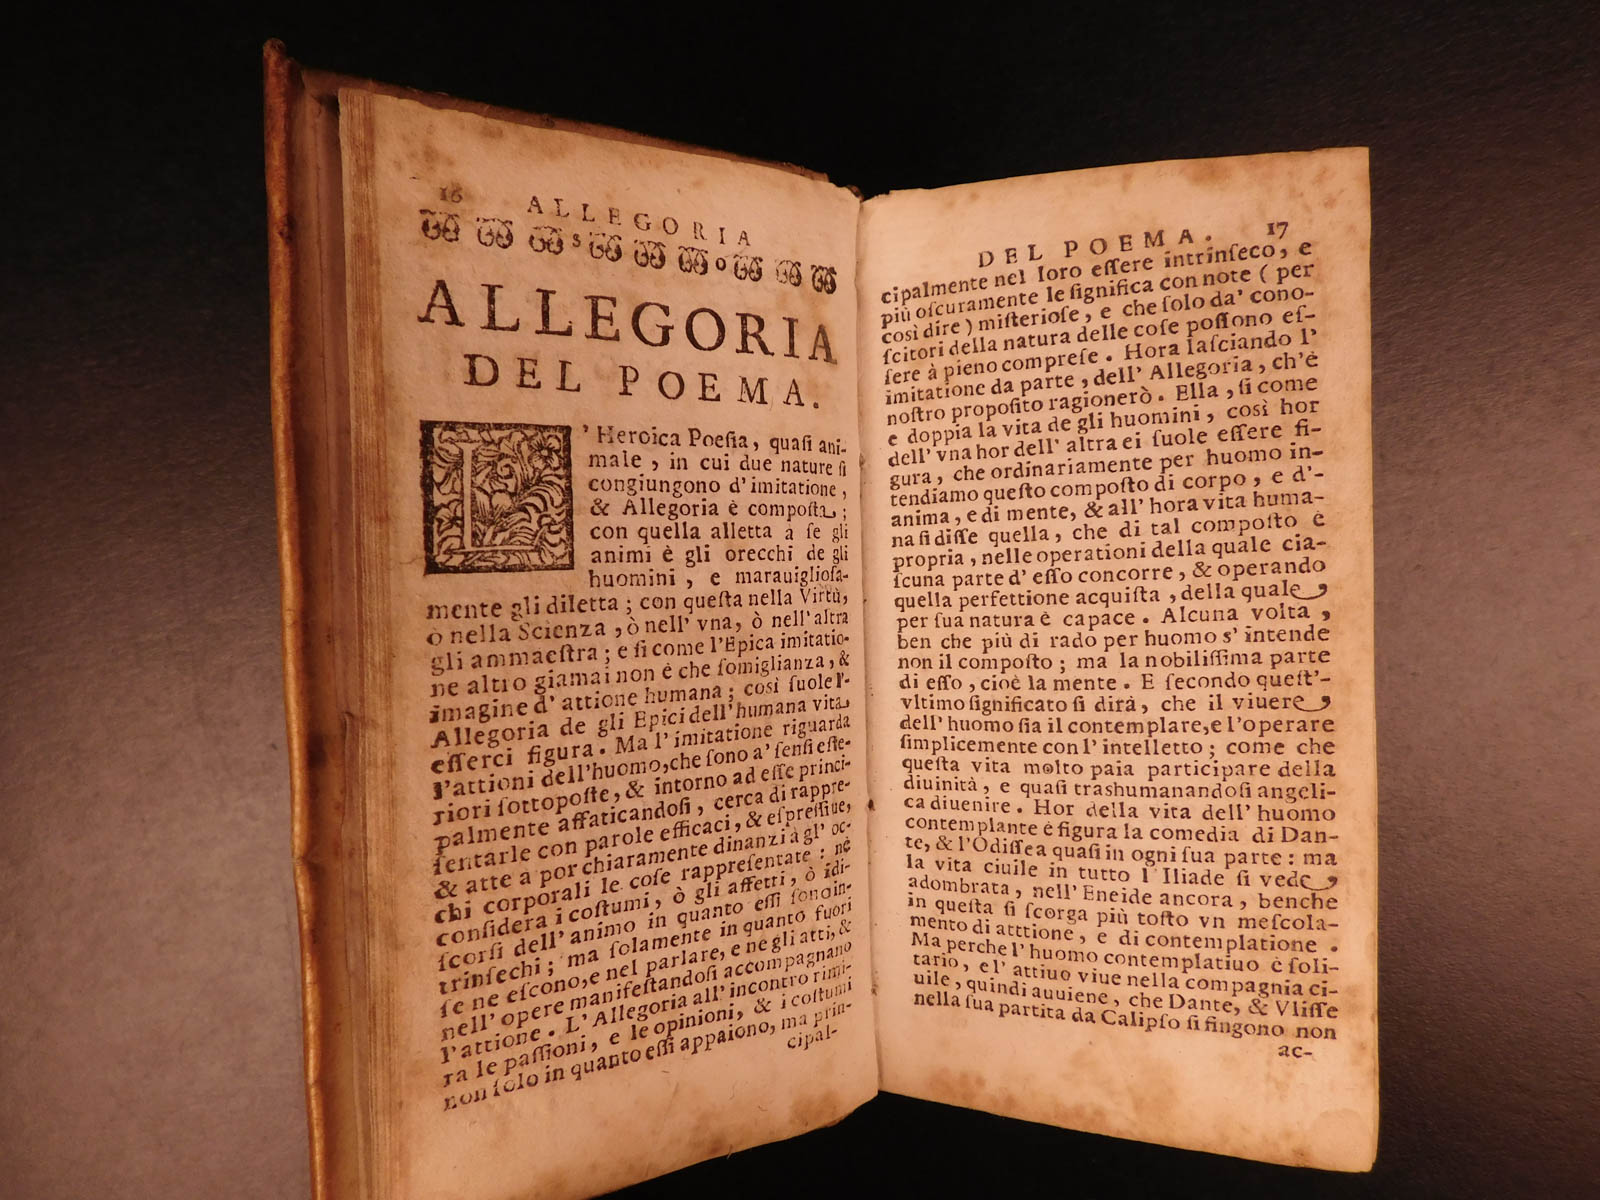 16 ALLEGORIA
ALLEGORIA
DEL POEMA.
L'Heroica Poeſia, quaſi ani-
male, in cui due nature ſi
congiungono d'imitatione,
& Allegoria è compoſta;
con quella alletta a ſe gli
animi è gli orecchi de gli
huomini, e marauiglioſa-
mente gli diletta; con queſta nella Virtù,
ò nella Scienza, ò nell' vna, ò nell'altra
gli ammaeſtra; e ſi come l'Epica imitatio-
ne altro giamai non è che ſomiglianza, &
imagine d' attione humana; così ſuole l'-
Allegoria de gli Epici dell'humana vita
eſſerci figura. Ma l' imitatione riguarda
l'attioni dell'huomo, che ſono a' ſenſi eſte-
riori ſottopoſte, & intorno ad eſſe princi-
palmente affaticandoſi, cerca di rappre-
ſentarle con parole efficaci, & eſpreſſiue,
& atte a por chiaramente dinanzi à gl' oc-
chi corporali le coſe rappreſentate: nè
conſidera i coſtumi, ò gli affetti, ò i di-
ſcorſi dell' animo in quanto eſſi ſono in-
trinſechi; ma ſolamente in quanto fuori
ſe ne eſcono, e nel parlare, e ne gli atti, &
nell' opere manifeſtandoſi accompagnano
l'attione. L'Allegoria all' incontro rimi-
ra le paſſioni, e le opinioni, & i coſtumi
non ſolo in quanto eſſi appaiono, ma prin-
cipal-
DEL POEMA. 17
cipalmente nel loro eſſere intrinſeco, e
più oſcuramente le ſignifica con note (per
così dire) miſterioſe, e che ſolo da' cono-
ſcitori della natura delle coſe poſſono eſ-
ſere à pieno compreſe. Hora laſciando l'
imitatione da parte, dell' Allegoria, ch'è
noſtro propoſito ragionerò. Ella, ſi come
e doppia la vita de gli huomini, così hor
dell' vna hor dell' altra ei ſuole eſſere fi-
gura, che ordinariamente per huomo in-
tendiamo queſto compoſto di corpo, e d'-
anima, e di mente, & all' hora vita huma-
na ſi diſſe quella, che di tal compoſto è
propria, nelle operationi della quale cia-
ſcuna parte d' eſſo concorre, & operando
quella perfettione acquiſta, della quale,
per ſua natura è capace. Alcuna volta,
ben che più di rado per huomo s' intende
non il compoſto; ma la nobiliſſima parte
di eſſo, cioè la mente. E ſecondo queſt'-
vltimo ſignificato ſi dirà, che il viuere,
dell' huomo ſia il contemplare, e l'operare
ſimplicemente con l' intelletto; come che
queſta vita molto paia participare della
diuinità, e quaſi trashumanandoſi angeli-
ca diuenire. Hor della vita dell' huomo
contemplante è figura la comedia di Dan-
te, & l'Odiſſea quaſi in ogni ſua parte: ma
la vita ciuile in tutto l' Iliade ſi vede,
adombrata, nell' Eneide ancora, benche
in queſta ſi ſcorga più toſto vn meſcola-
mento di atttione, e di contemplatione.
Ma perche l' huomo contemplatiuo è ſoli-
tario, e l' attiuo viue nella compagnia ci-
uile, quindi auuiene, che Dante, & Vliſſe
nella ſua partita da Calipſo ſi fingono non
ac-